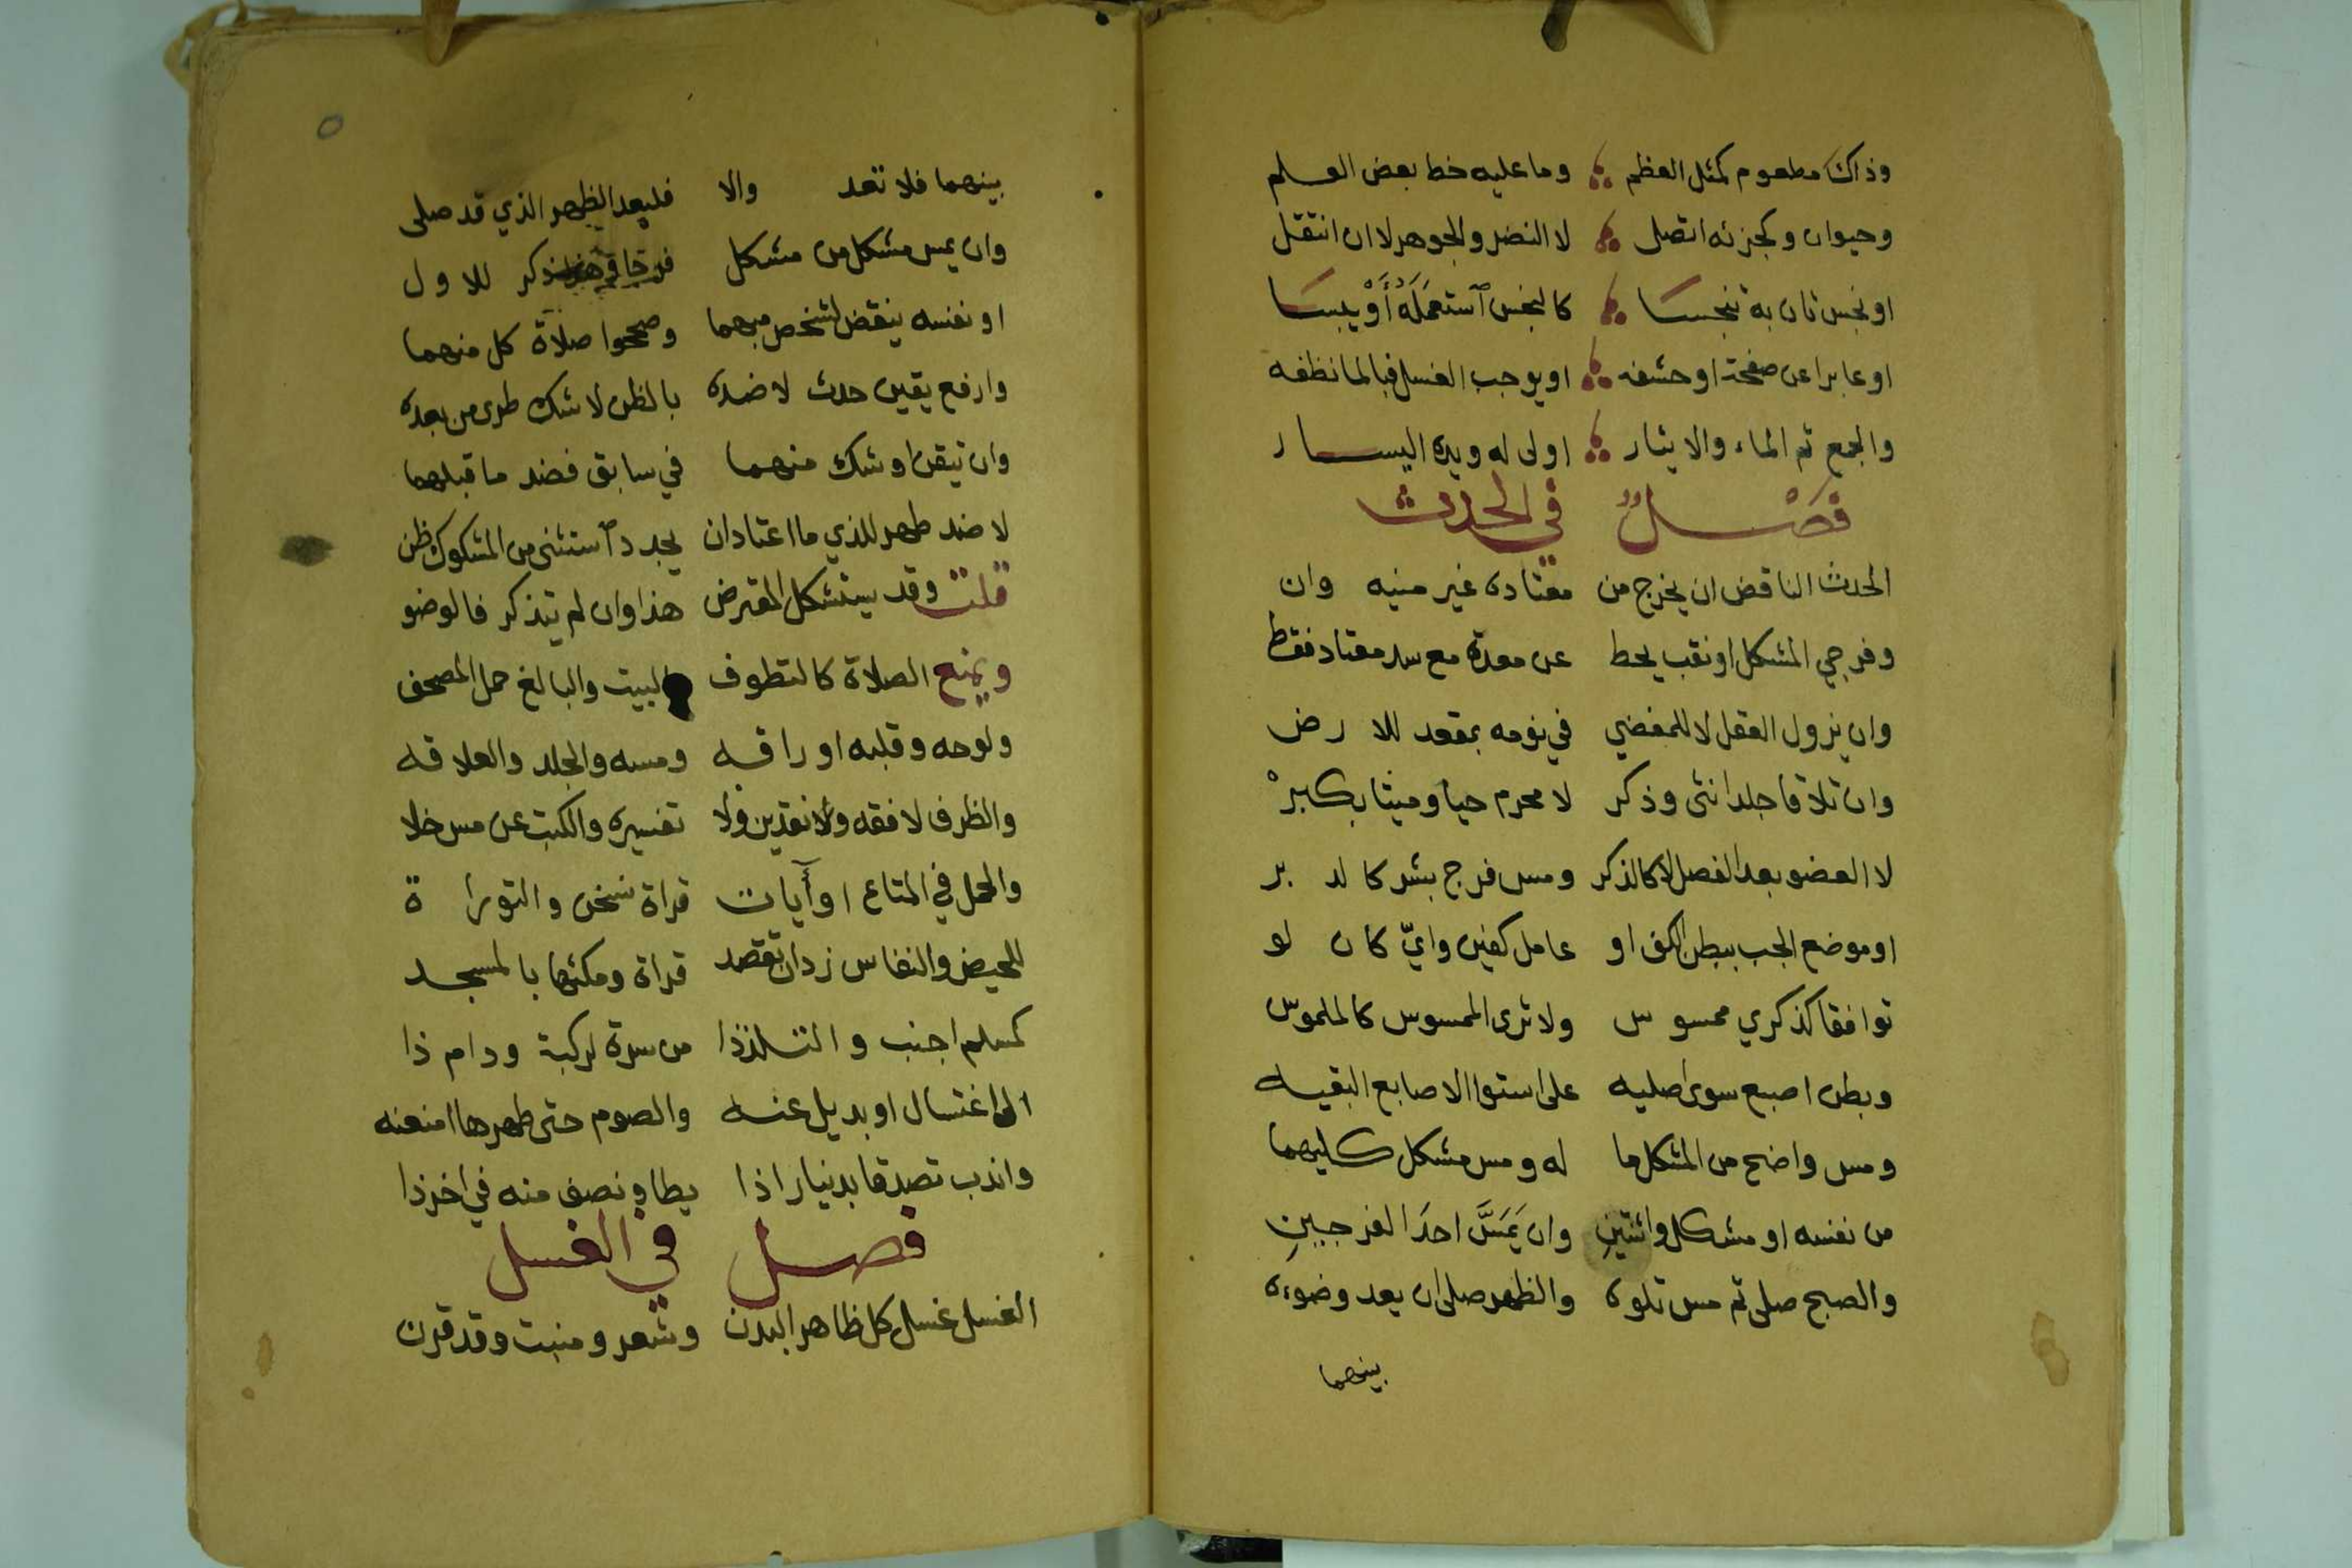 وذاك مطعوم كمثل العظم وما عليه خط بعض العلم
وحيوان وكجزئه اتصل لا النضر والجوهر لا ان انتقل
او نجس ثان به تنجسا كالنجس ٱستعمله أو يبسا
او عابرا عن صفحة او حشفه او يوجب الغسل فبالما نظفه
والجمع ثم الماء والايثار اولى له ويده اليسار
فصل في الحدث
الحدث الناقض ان يخرج من معتاده غير منيه وان
وفرجي المشكل او نقب يحط عن معدة مع سد معتاد فقط
وان يزول العقل لا للمفضي في نومه بمقعد للارض
وان تلاقا جلد انثى وذكر لا محرم حيا وميتا بكبر
لا العضو بعد الفصل لا كالذكر ومس فرج بشر كالدبر
او موضع الجب ببطن الكف او عامل كفين وايّ كان لو
توافقا كذكري ممسوس ولا ترى الممسوس كالملموس
وبطن اصبع سوى اصليه على استوا الاصابع البقيه
ومس واضح من المشكل ما له ومس مشكل كليهما
من نفسه او مشكل واثنتين وان يَمَسَّ احدَ الفرجينِ
والصبح صلى ثم مس تلوه والظهر صلى ان يعد وضوءه
بينهما
٥
بينهما فلا تعد والا فليعد الظهر الذي قد صلى
وان يمس مشكل من مشكل فرجا ذكر للاول
او نفسه ينقض لشخص مبهما وصححوا صلاة كل منهما
وارفع يقين حدث لا ضده بالظن لا شك طرى من بعده
وان تيقن او شك منهما في سابق فضد ما قبلهما
لا ضد طهر للذي ما اعتاد ان يجدد ٱستثنى من المشكوك ظن
قلت وقد يستشكل المقترض هذا وان لم يتذكر فالوضو
ويمنع الصلاة كالتطوف البيت والبالغ حمل المصحف
ولوحه وقلبه اوراقه ومسه والجلد والعلاقه
والظرف لا فقه ولا نقدين ولا تفسيره والكتب عن مس خلا
والحمل في المتاع او آيات قراة نسخن والتوراة
للحيض والنفاس زد ان تقصد قراة ومكثها بالمسجد
كمسلم اجنب والتلذذا من سرة لركبة ودام ذا
الى اغتسال او بديل عنه والصوم حتى طهرها امنعنه
واندب تصدقا بدينار اذا يطا ونصف منه في اخر ذا
فصل في الغسل
الغسل غسل كل ظاهر البدن وشعر ومنبت وقد قرن